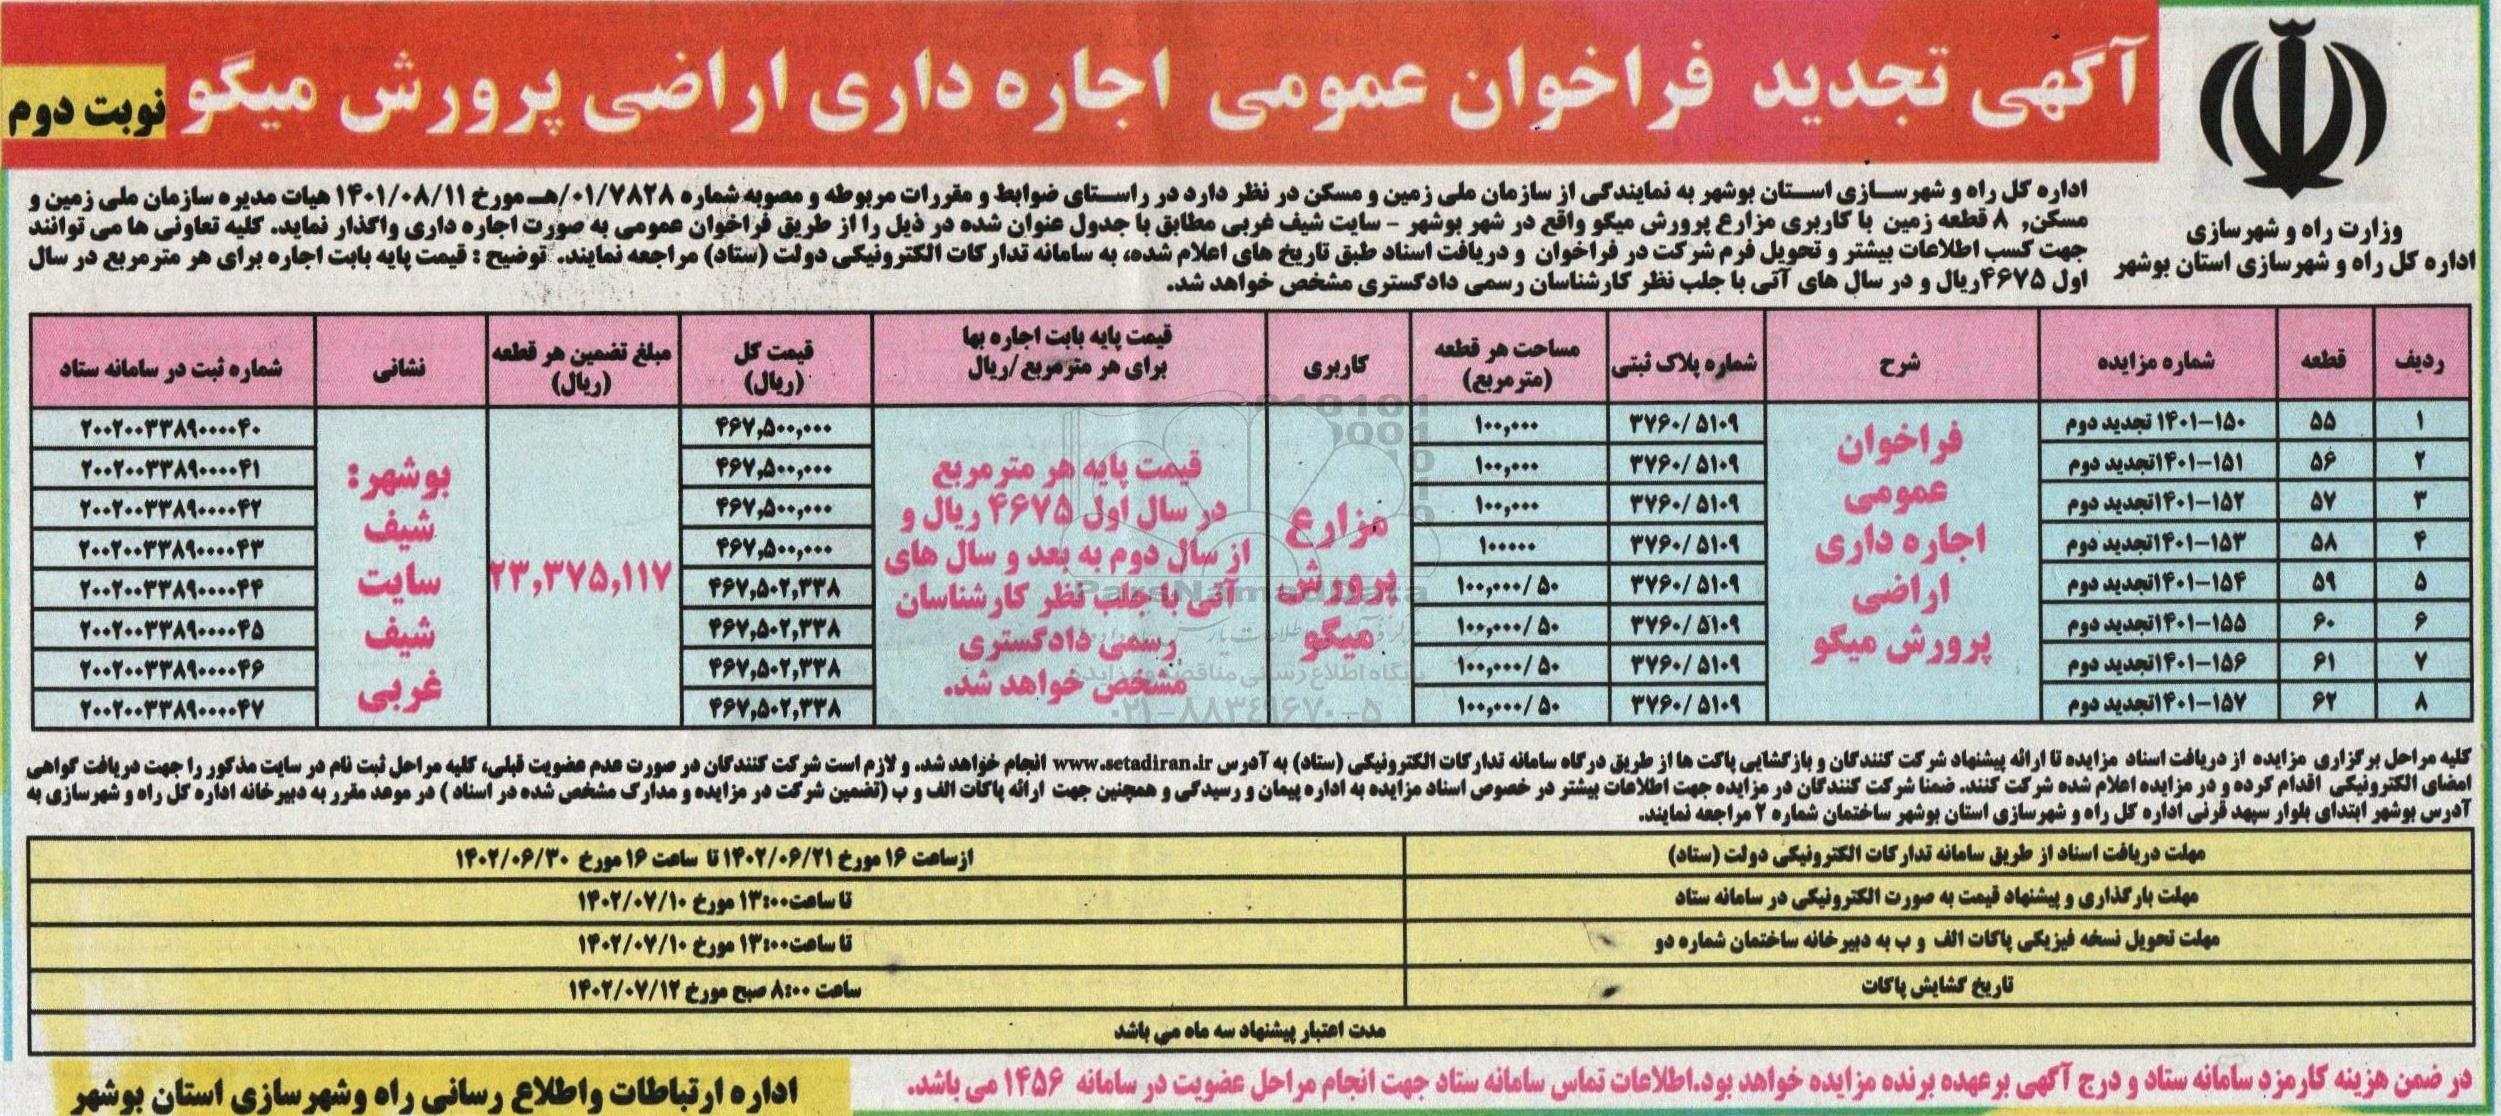 آگهی تجدید فراخوان عمومی اجاره داری اراضی پرورش میگو
نوبت دوم
وزارت راه و شهرسازی
اداره کل راه و شهرسازی استان بوشهر
اداره کل راه و شهرسازی استان بوشهر به نمایندگی از سازمان ملی زمین و مسکن در نظر دارد در راستای ضوابط و مقررات مربوطه و مصوبه شماره ۰۱/۷۸۲۸/هـ مورخ ۱۴۰۱/۰۸/۱۱ هیات مدیره سازمان ملی زمین و
مسکن, ۸ قطعه زمین با کاربری مزارع پرورش میگو واقع در شهر بوشهر - سایت شیف غربی مطابق با جدول عنوان شده در ذیل را از طریق فراخوان عمومی به صورت اجاره داری واگذار نماید. کلیه تعاونی ها می توانند
جهت کسب اطلاعات بیشتر و تحویل فرم شرکت در فراخوان و دریافت اسناد طبق تاریخ های اعلام شده، به سامانه تدارکات الکترونیکی دولت (ستاد) مراجعه نمایند. توضیح : قیمت پایه بابت اجاره برای هر مترمربع در سال
اول ۴۶۷۵ریال و در سال های آتی با جلب نظر کارشناسان رسمی دادگستری مشخص خواهد شد.
ردیف | قطعه | شماره مزایده | شرح | شماره پلاک ثبتی | مساحت هر قطعه (مترمربع) | کاربری | قیمت پایه بابت اجاره بها برای هر مترمربع/ریال | قیمت کل (ریال) | مبلغ تضمین هر قطعه (ریال) | نشانی | شماره ثبت در سامانه ستاد
۱ | ۵۵ | ۱۴۰۱-۱۵۰ تجدید دوم | ۳۷۶۰/۵۱۰۹ | ۱۰۰,۰۰۰ | ۴۶۷,۵۰۰,۰۰۰ | ۲۰۰۲۰۰۳۳۸۹۰۰۰۰۴۰
۲ | ۵۶ | ۱۴۰۱-۱۵۱تجدید دوم | ۳۷۶۰/۵۱۰۹ | ۱۰۰,۰۰۰ | ۴۶۷,۵۰۰,۰۰۰ | ۲۰۰۲۰۰۳۳۸۹۰۰۰۰۴۱
۳ | ۵۷ | ۱۴۰۱-۱۵۲تجدید دوم | ۳۷۶۰/۵۱۰۹ | ۱۰۰,۰۰۰ | ۴۶۷,۵۰۰,۰۰۰ | ۲۰۰۲۰۰۳۳۸۹۰۰۰۰۴۲
۴ | ۵۸ | ۱۴۰۱-۱۵۳تجدید دوم | ۳۷۶۰/۵۱۰۹ | ۱۰۰۰۰۰ | ۴۶۷,۵۰۰,۰۰۰ | ۲۰۰۲۰۰۳۳۸۹۰۰۰۰۴۳
۵ | ۵۹ | ۱۴۰۱-۱۵۴تجدید دوم | ۳۷۶۰/۵۱۰۹ | ۱۰۰,۰۰۰/۵۰ | ۴۶۷,۵۰۲,۳۳۸ | ۲۰۰۲۰۰۳۳۸۹۰۰۰۰۴۴
۶ | ۶۰ | ۱۴۰۱-۱۵۵تجدید دوم | ۳۷۶۰/۵۱۰۹ | ۱۰۰,۰۰۰/۵۰ | ۴۶۷,۵۰۲,۳۳۸ | ۲۰۰۲۰۰۳۳۸۹۰۰۰۰۴۵
۷ | ۶۱ | ۱۴۰۱-۱۵۶تجدید دوم | ۳۷۶۰/۵۱۰۹ | ۱۰۰,۰۰۰/۵۰ | ۴۶۷,۵۰۲,۳۳۸ | ۲۰۰۲۰۰۳۳۸۹۰۰۰۰۴۶
۸ | ۶۲ | ۱۴۰۱-۱۵۷تجدید دوم | ۳۷۶۰/۵۱۰۹ | ۱۰۰,۰۰۰/۵۰ | ۴۶۷,۵۰۲,۳۳۸ | ۲۰۰۲۰۰۳۳۸۹۰۰۰۰۴۷
فراخوان
عمومی
اجاره داری
اراضی
پرورش میگو
مزارع
پرورش
میگو
قیمت پایه هر مترمربع
در سال اول ۴۶۷۵ ریال و
از سال دوم به بعد و سال های
آتی با جلب نظر کارشناسان
رسمی دادگستری
مشخص خواهد شد.
۲۳,۳۷۵,۱۱۷
بوشهر:
شیف
سایت
شیف
غربی
ParsNamadData
پایگاه اطلاع رسانی مناقصه و مزایده
۰۲۱-۸۸۳۴۹۶۷۰-۵
کلیه مراحل برگزاری مزایده از دریافت اسناد مزایده تا ارائه پیشنهاد شرکت کنندگان و بازگشایی پاکت ها از طریق درگاه سامانه تدارکات الکترونیکی (ستاد) به آدرس www.setadiran.ir انجام خواهد شد. و لازم است شرکت کنندگان در صورت عدم عضویت قبلی، کلیه مراحل ثبت نام در سایت مذکور را جهت دریافت گواهی
امضای الکترونیکی اقدام کرده و در مزایده اعلام شده شرکت کنند. ضمنا شرکت کنندگان در مزایده جهت اطلاعات بیشتر در خصوص اسناد مزایده به اداره پیمان و رسیدگی و همچنین جهت ارائه پاکات الف و ب (تضمین شرکت در مزایده و مدارک مشخص شده در اسناد ) در موعد مقرر به دبیرخانه اداره کل راه و شهرسازی به
آدرس بوشهر ابتدای بلوار سپهد قرنی اداره کل راه و شهرسازی استان بوشهر ساختمان شماره ۲ مراجعه نمایند.
مهلت دریافت اسناد از طریق سامانه تدارکات الکترونیکی دولت (ستاد) | ازساعت ۱۶ مورخ ۱۴۰۲/۰۶/۲۱ تا ساعت ۱۶ مورخ ۱۴۰۲/۰۶/۳۰
مهلت بارگذاری و پیشنهاد قیمت به صورت الکترونیکی در سامانه ستاد | تا ساعت۱۳:۰۰ مورخ ۱۴۰۲/۰۷/۱۰
مهلت تحویل نسخه فیزیکی پاکات الف و ب به دبیرخانه ساختمان شماره دو | تا ساعت۱۳:۰۰ مورخ ۱۴۰۲/۰۷/۱۰
تاریخ گشایش پاکات | ساعت ۸:۰۰ صبح مورخ ۱۴۰۲/۰۷/۱۲
مدت اعتبار پیشنهاد سه ماه می باشد
در ضمن هزینه کارمزد سامانه ستاد و درج آگهی برعهده برنده مزایده خواهد بود.اطلاعات تماس سامانه ستاد جهت انجام مراحل عضویت در سامانه ۱۴۵۶ می باشد.
اداره ارتباطات واطلاع رسانی راه وشهرسازی استان بوشهر